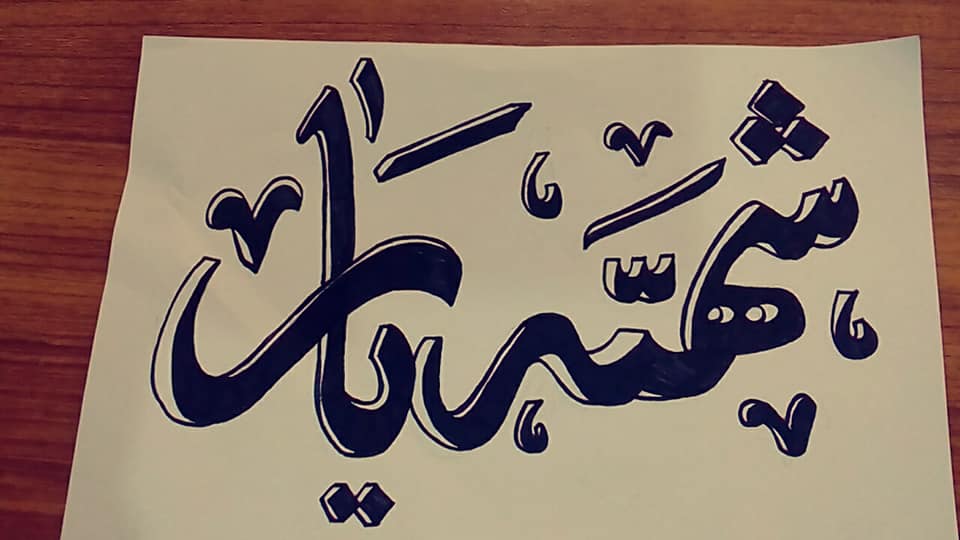 شهریار